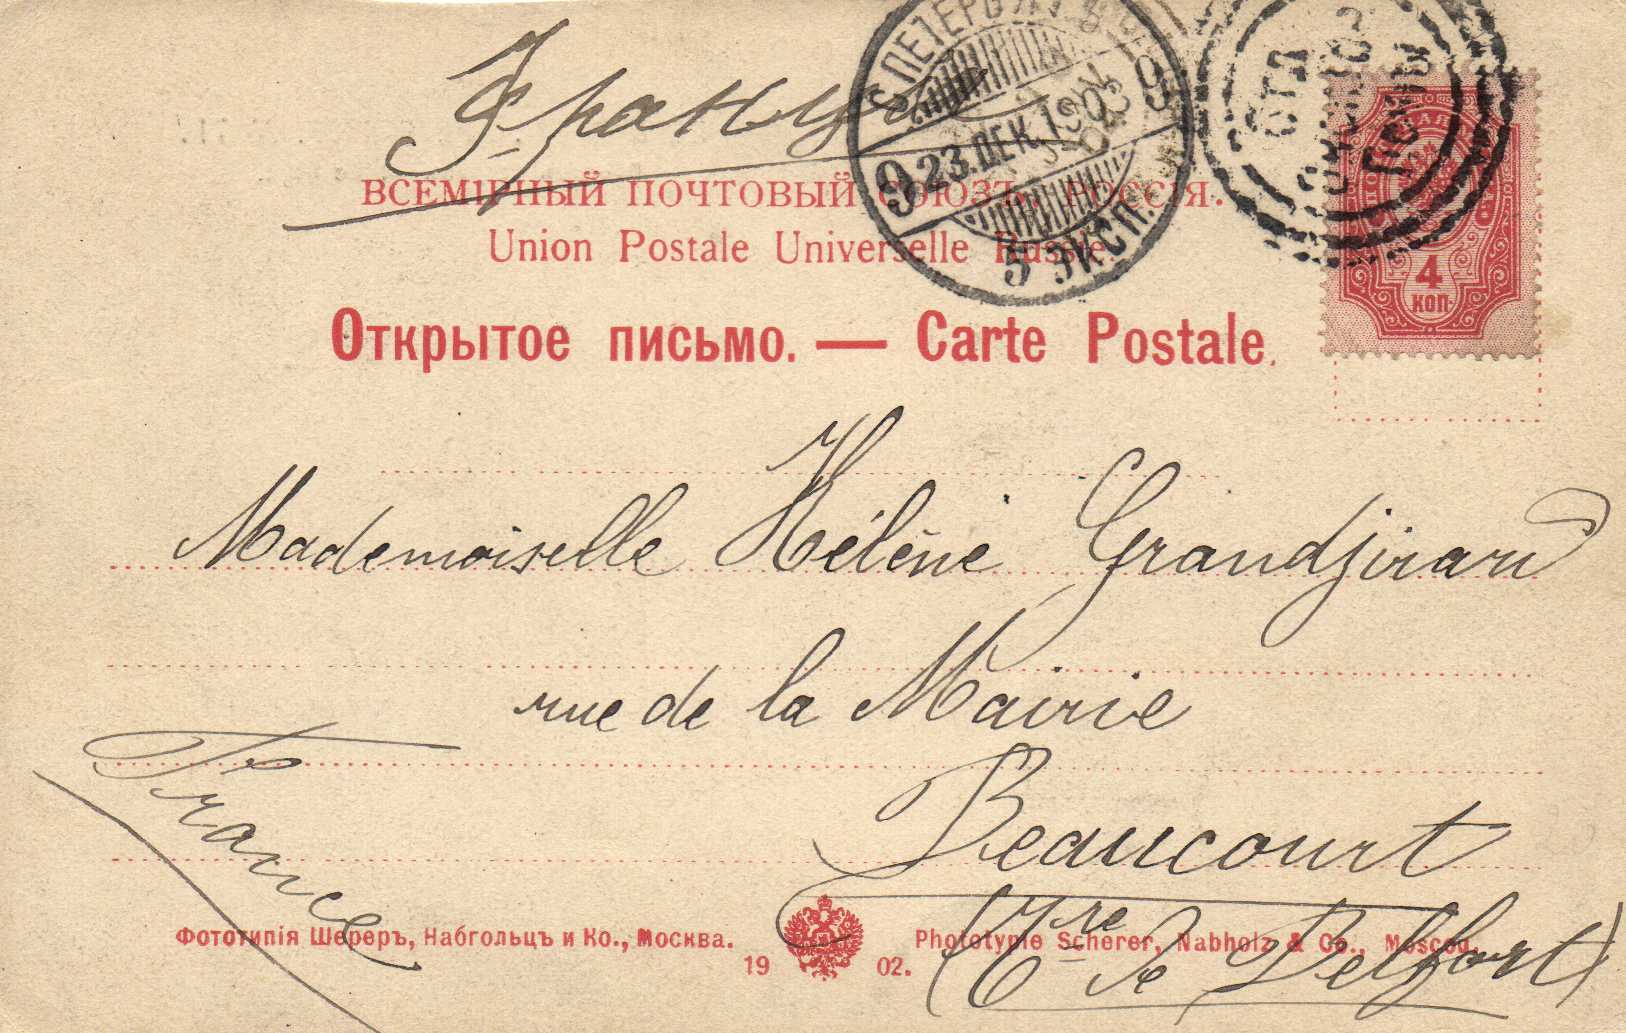 Франція
С. ПЕТЕРБУРГЪ
9 23.ДЕК.190 9
5 ЭКСП.
ВСЕМІРНЫЙ ПОЧТОВЫЙ СОЮЗЪ. РОССІЯ.
Union Postale Universelle Russie.
4
КОП
Открытое письмо. — Carte Postale.
Mademoiselle Hélène Grandjirard
rue de la Mairie
Beaucourt
(Tre de Belfort)
France
Фототипія Шереръ, Набгольцъ и Ко., Москва.
1902.
Phototypie Scherer, Nabholz & Co., Moscou.